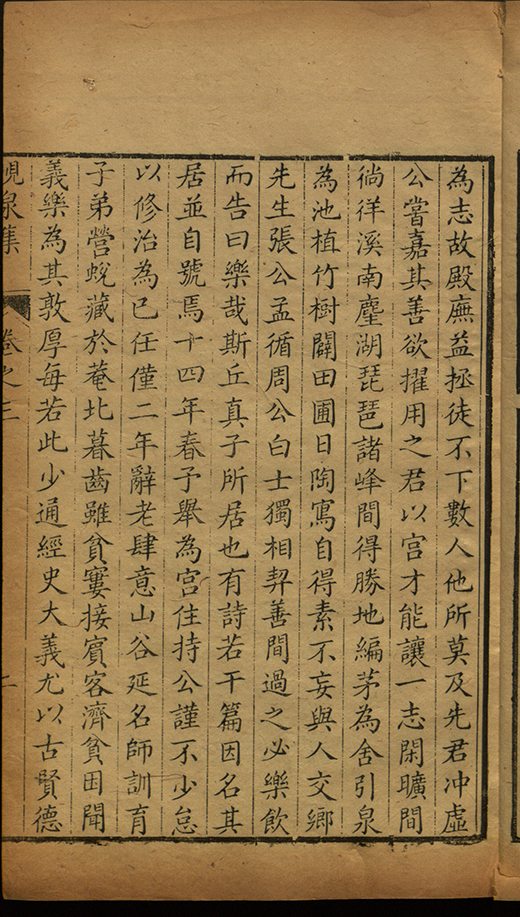 為志故殿廡益拯徒不下數人他所莫及先君沖虛
公嘗嘉其善欲擢用之君以宮才能讓一志閑曠間
徜徉溪南塵湖琵琶諸峰間得勝地編茅為舍引泉
為池植竹樹闢田圃日陶寫自得素不妄與人交鄉
先生張公孟循周公白士獨相契善間過之必樂飲
而告曰樂哉斯丘真子所居也有詩若干篇因名其
居並自號焉十四年春予舉為宮住持公謹不少怠
以修治為已任僅二年辭老肆意山谷延名師訓育
子弟營蛻藏於菴北暮齒雖貧窶接賓客濟貧困聞
義樂為其敦厚每若此少通經史大義尤以古賢德
峴泉集 卷之三 二